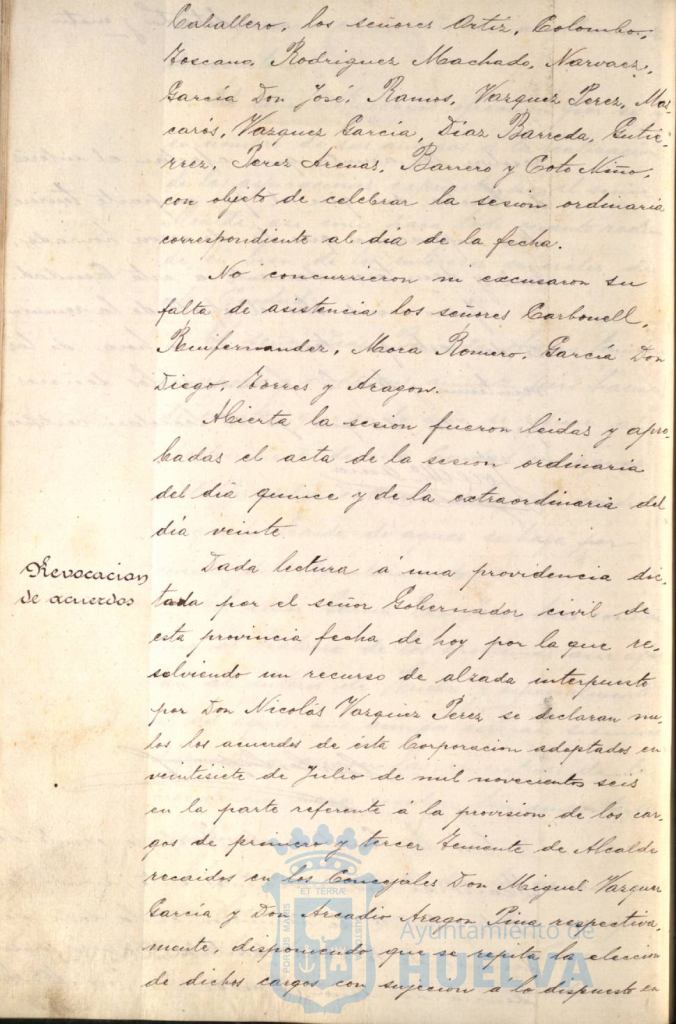 Caballero, los señores Ortiz, Colombo,
Toscano, Rodriguez Machado, Narvaez,
García Don José, Ramos, Vazquez Perez, Mas-
carós, Vazquez García, Díaz Barreda, Gutie-
rrez, Perez Arenas, Barrero y Coto Niño,
con objeto de celebrar la sesion ordinaria
correspondiente al día de la fecha.
No concurrieron ni excusaron su
falta de asistencia los señores Carbonell,
Mora Romero, García Don
Diego, Torres y Aragon.
Abierta la sesion fueron leidas y apro-
badas el acta de la sesion ordinaria
del día quince y de la extraordinaria del
día veinte
Revocacion
de acuerdos
Dada lectura á una providencia dic-
tada por el señor Gobernador civil de
esta provincia fecha de hoy por la que re-
solviendo un recurso de alzada interpuesto
por Don Nicolás Vazquez Perez se declaran nu-
los los acuerdos de ésta Corporacion adoptados en
veintisiete de Julio de mil novecientos seis
en la parte referente á la provision de los car-
gos de primero y tercer Teniente de Alcalde
recaidos en los Concejales Don Miguel Vazquez
García y Don Arcadio Aragon Pina respectiva-
mente, disponiendo que se repita la eleccion
de dichos cargos con sujecion a lo dispuesto en
PORTUS MARIS
ET TERRÆ
CUSTODIA
Ayuntamiento de
HUELVA